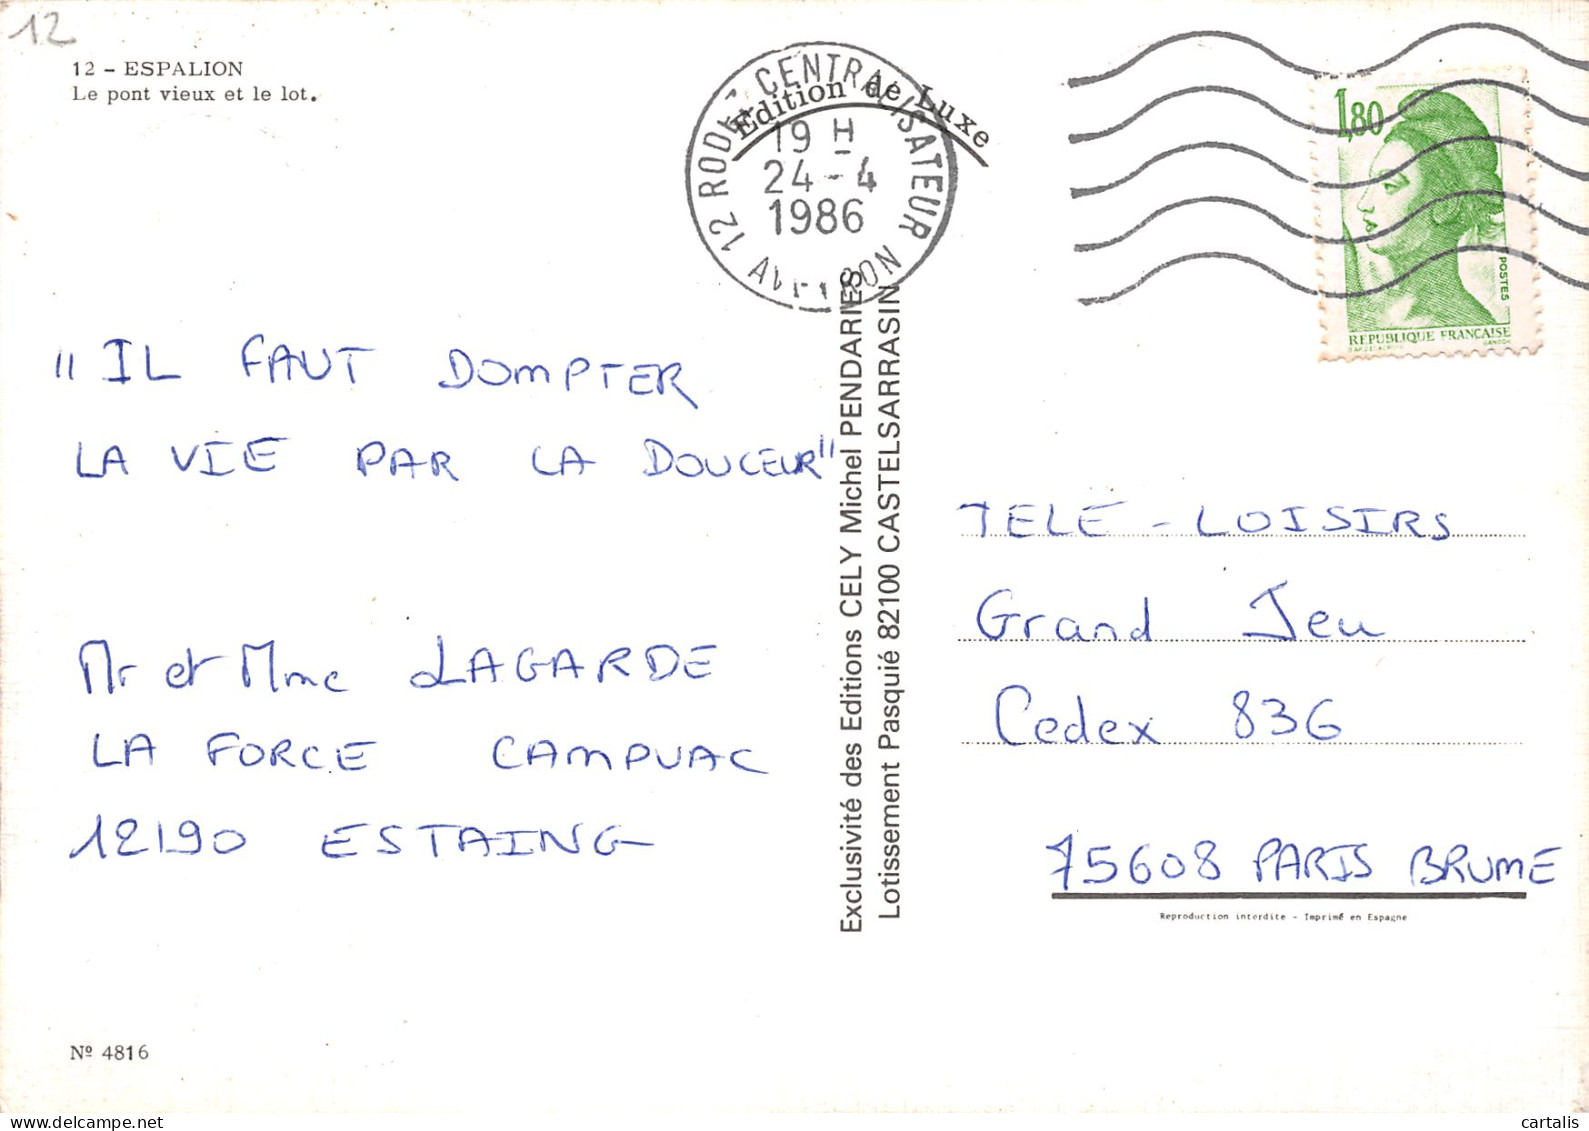 12
12 - ESPALION
Le pont vieux et le lot.
Edition de Luxe
CENTRALISATEUR
19 H
24-4
1986
1,80
POSTES
REPUBLIQUE FRANÇAISE
GANDON
"IL FAUT DOMPTER
LA VIE PAR LA DOUCEUR"
Mr et Mme LAGARDE
LA FORCE CAMPUAC
12190 ESTAING
Nº 4816
Exclusivité des Editions CELY Michel PENDARIES
Lotissement Pasquié 82100 CASTELSARRASIN
TELE - LOISIRS
Grand Jeu
Cedex 836
75608 PARIS BRUME
Reproduction interdite - Imprimé en Espagne
cartalis